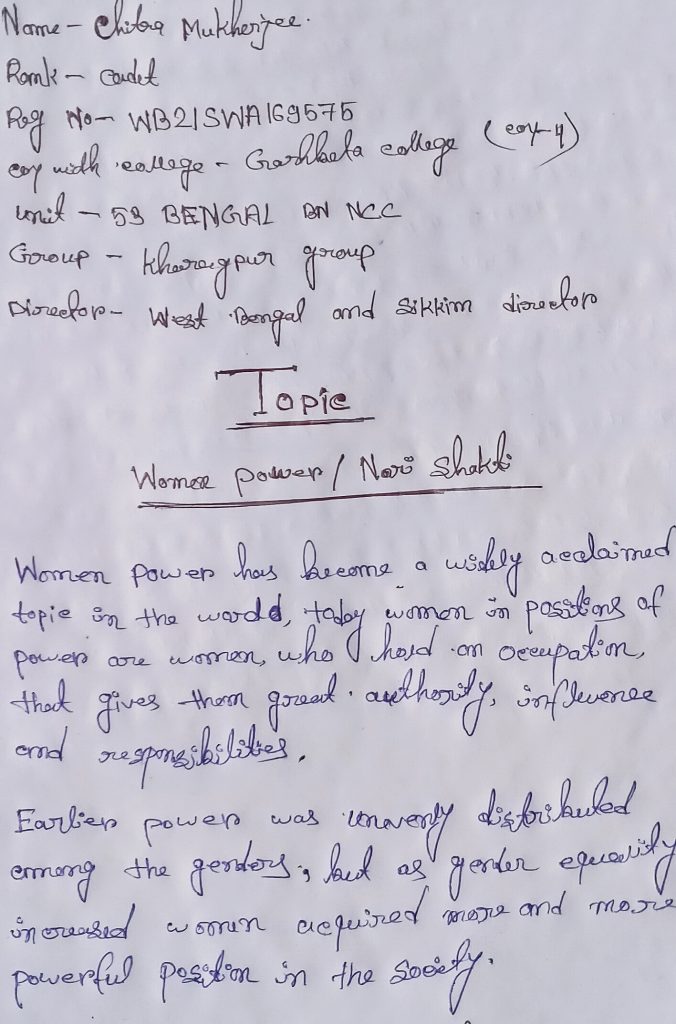 Name - Chitra Mukherjee.
Rank - Cadet
Reg No - WB21SWA169575
coy with college - Garhbeta college (coy-4)
Unit - 53 BENGAL BN NCC
Group - Kharagpur group
Director - West Bengal and Sikkim director
Topic
Women power / Nari Shakti
Women power has become a widely acclaimed
topic in the world, today women in positions of
power are women, who hold an occupation,
that gives them great authority, influence
and responsibilities.
Earlier power was unevenly distributed
among the genders, but as gender equality
increased women acquired more and more
powerful position in the society.